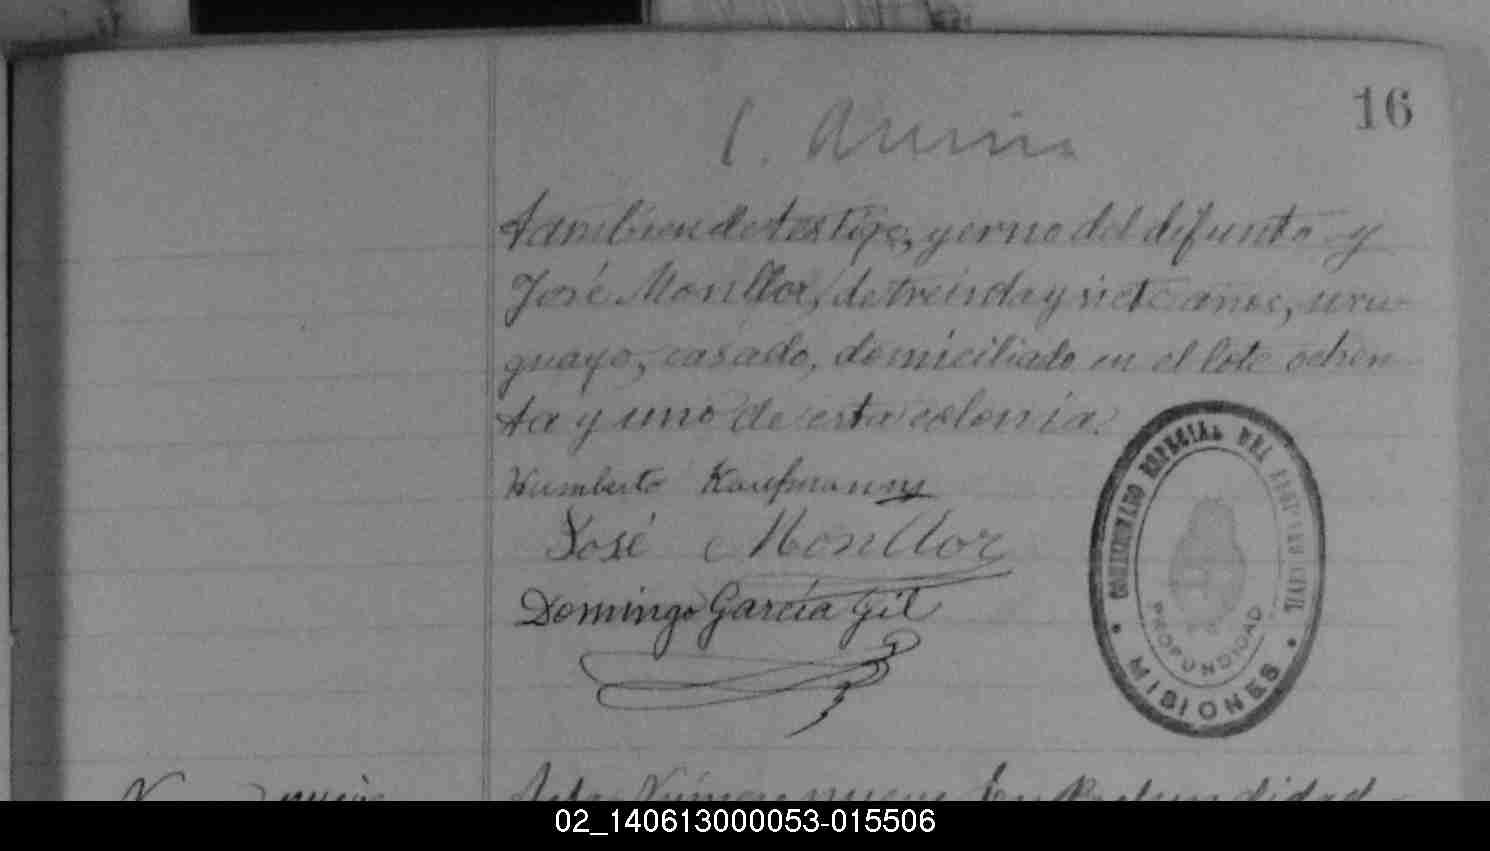 16
tambien de testigo, yerno del difunto y
José Monllor, de treinta y siete años, uru-
guayo, casado, domiciliado en el lote ochen-
ta y uno de esta colonia.
Humberto Kaufmann
José Monllor
Domingo García Gil
COMISARIADO ESPECIAL DEL REGISTRO CIVIL
PROFUNDIDAD
MISIONES
Acta Número nueve En Profundidad
02_140613000053-015506